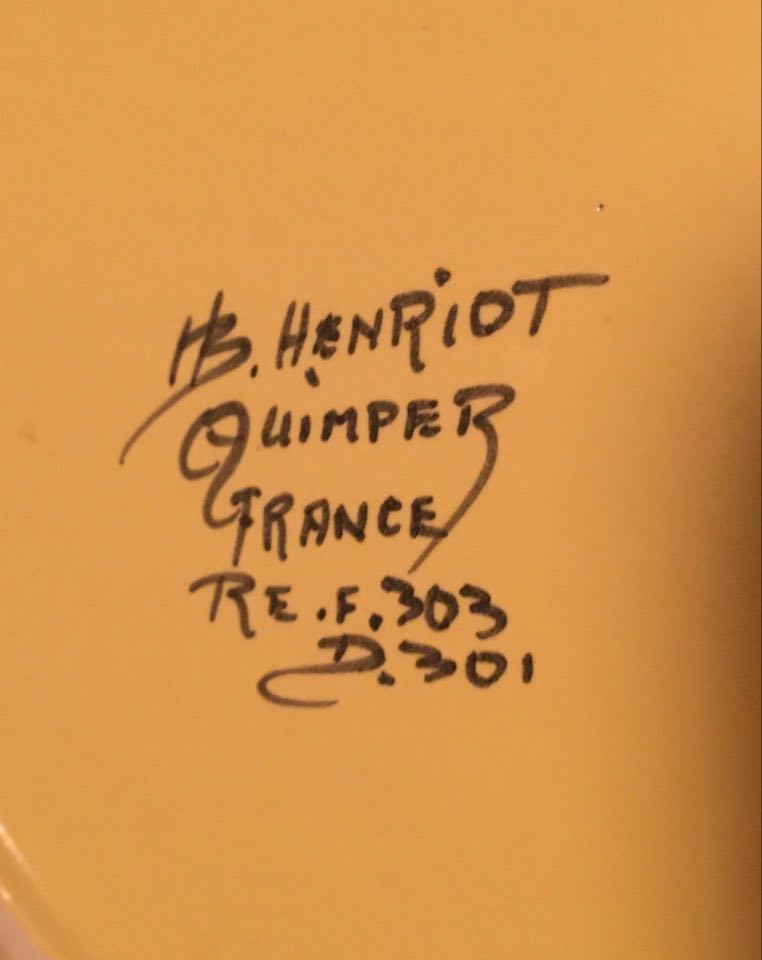 HB. HENRiOT
QUiMPER
FRANCE
RE.F.303
D.301